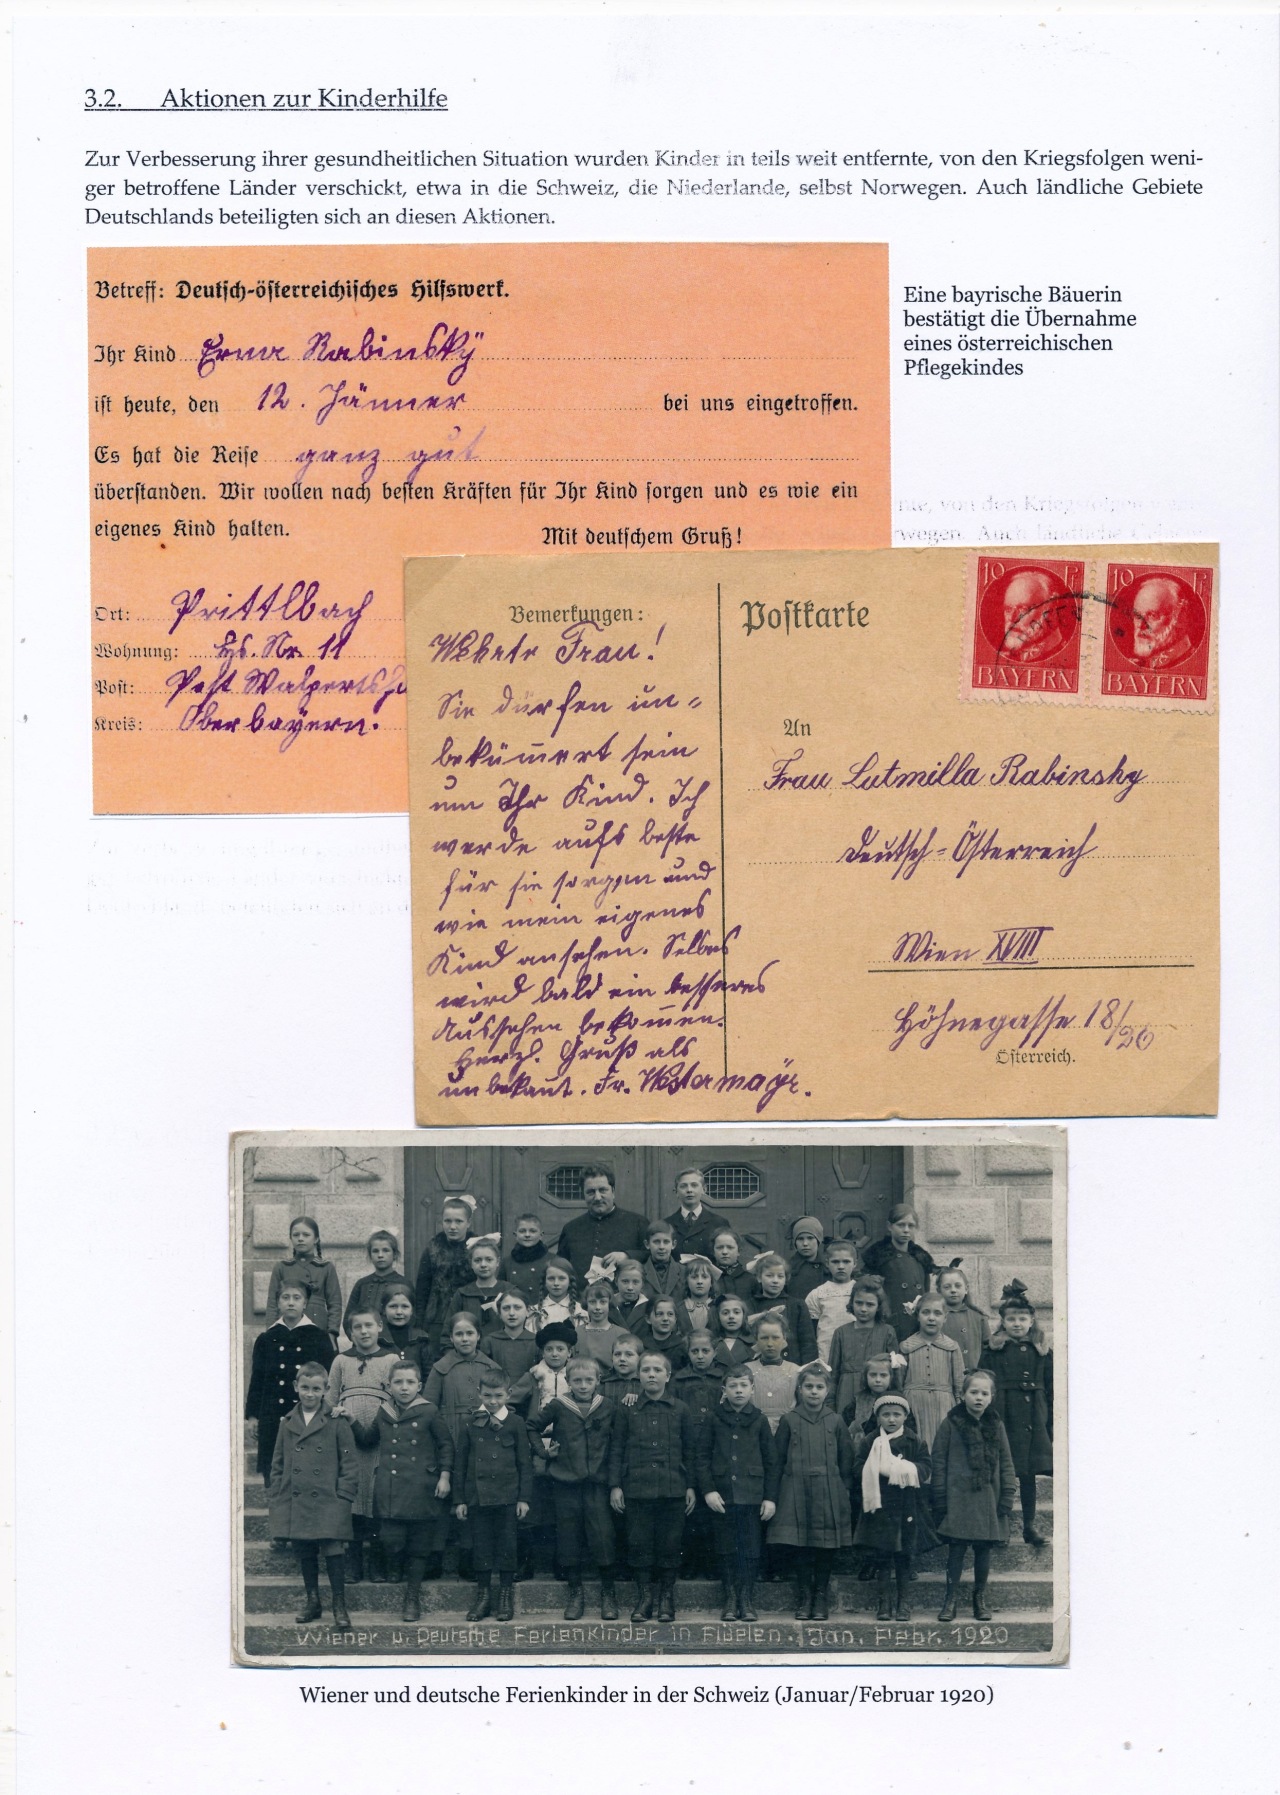 3.2. Aktionen zur Kinderhilfe
Zur Verbesserung ihrer gesundheitlichen Situation wurden Kinder in teils weit entfernte, von den Kriegsfolgen weni-
ger betroffene Länder verschickt, etwa in die Schweiz, die Niederlande, selbst Norwegen. Auch ländliche Gebiete
Deutschlands beteiligten sich an diesen Aktionen.
Betreff: Deutsch-österreichisches Hilfswerk.
Ihr Kind Erna Rabinsky
ist heute, den 12. Jänner bei uns eingetroffen.
Es hat die Reise ganz gut
überstanden. Wir wollen nach besten Kräften für Ihr Kind sorgen und es wie ein
eigenes Kind halten.
Mit deutschem Gruß!
Ort: Prittlbach
Wohnung: Hs. Nr. 11
Post: Post Walpertsho
Kreis: Oberbayern.
Eine bayrische Bäuerin
bestätigt die Übernahme
eines österreichischen
Pflegekindes
Bemerkungen:
Werte Frau!
Sie dürfen un=
bekümert sein
um Ihr Kind. Ich
werde aufs beste
für sie sorgen und
wie mein eigenes
Kind ansehen. Selbes
wird bald ein besseres
Aussehen bekomen.
Herzl. Gruß als
unbekant. Fr. Westermayr.
Postkarte
10 Pf
BAYERN
10 Pf
BAYERN
An
Frau Lutmilla Rabinsky
Deutsch=Österreich
Wien XVIII
Höhnegasse 18/20
Österreich.
Wiener u. Deutsche Ferienkinder in Flüelen. Jan. Febr. 1920
Wiener und deutsche Ferienkinder in der Schweiz (Januar/Februar 1920)